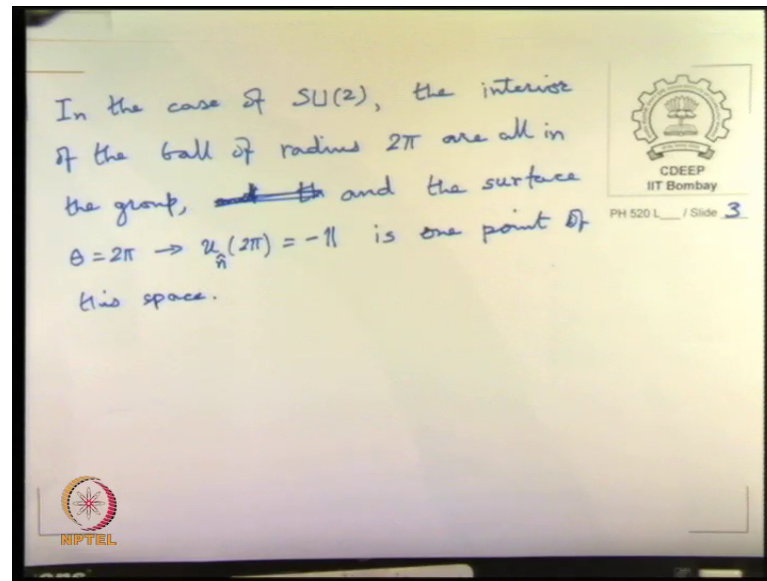 In the case of SU(2), the interior
of the ball of radius 2π are all in
the group, and the surface
θ = 2π → u_n̂(2π) = -𝟙 is one point of
this space.
CDEEP
IIT Bombay
PH 520 L___ / Slide 3
NPTEL